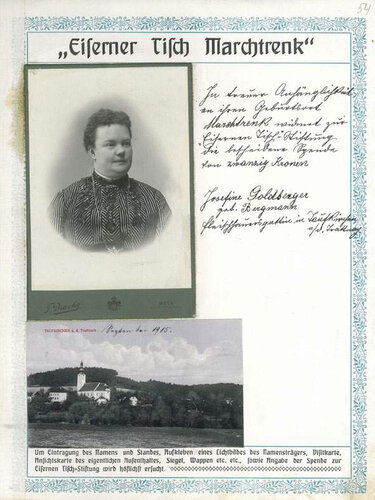 54
„Eiserner Tisch Marchtrenk“
In treuer Anhänglichkeit
an ihren Geburtsort
Marchtrenk widmet zur
Eisernen Tisch-Stiftung
die bescheidene Spende
von zwanzig Kronen
Josefine Goldberger
geb. Bergmann
Fleischhauersgattin in Taufkirchen
a/d. Trattnach
WELS
TAUFKIRCHEN a. d. Trattnach
September 1915.
Um Eintragung des Namens und Standes, Aufkleben eines Lichtbildes des Namensträgers, Visitkarte,
Ansichtskarte des eigentlichen Aufenthaltes, Siegel, Wappen etc. etc., sowie Angabe der Spende zur
Eisernen Tisch-Stiftung wird höflichst ersucht.